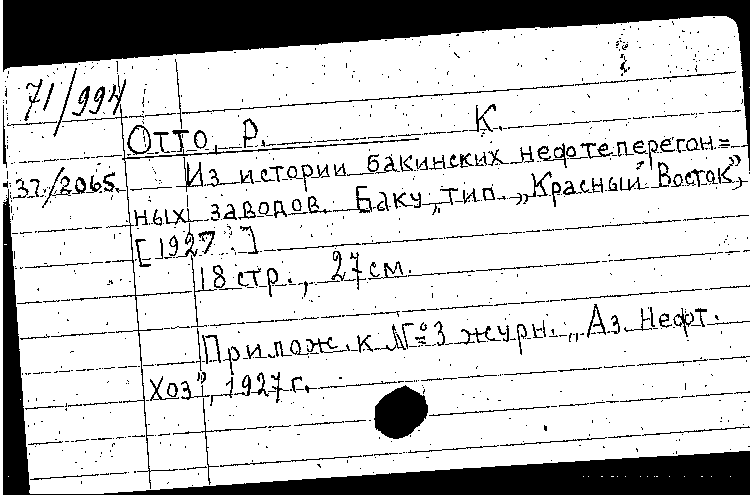 71/994
Отто, Р. К.
37/2065. Из истории бакинских нефтеперегон=
ных заводов. Баку, тип. „Красный Восток",
[1927]
18 стр., 27 см.
Прилож. к № 3 журн. „Аз. Нефт.
Хоз", 1927 г.